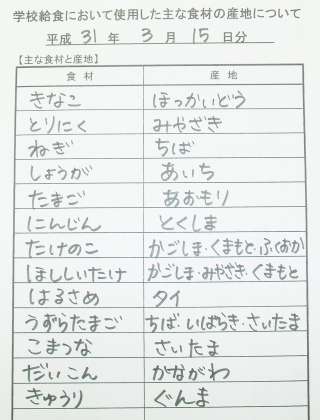 学校給食において使用した主な食材の産地について
平成 31 年 3 月 15 日分
【主な食材と産地】
食材 産地
きなこ ほっかいどう
とりにく みやざき
ねぎ ちば
しょうが あいち
たまご あおもり
にんじん とくしま
たけのこ かごしま・くまもと・ふくおか
ほししいたけ かごしま・みやざき・くまもと
はるさめ タイ
うずらたまご ちば・いばらき・さいたま
こまつな さいたま
だいこん かながわ
きゅうり ぐんま